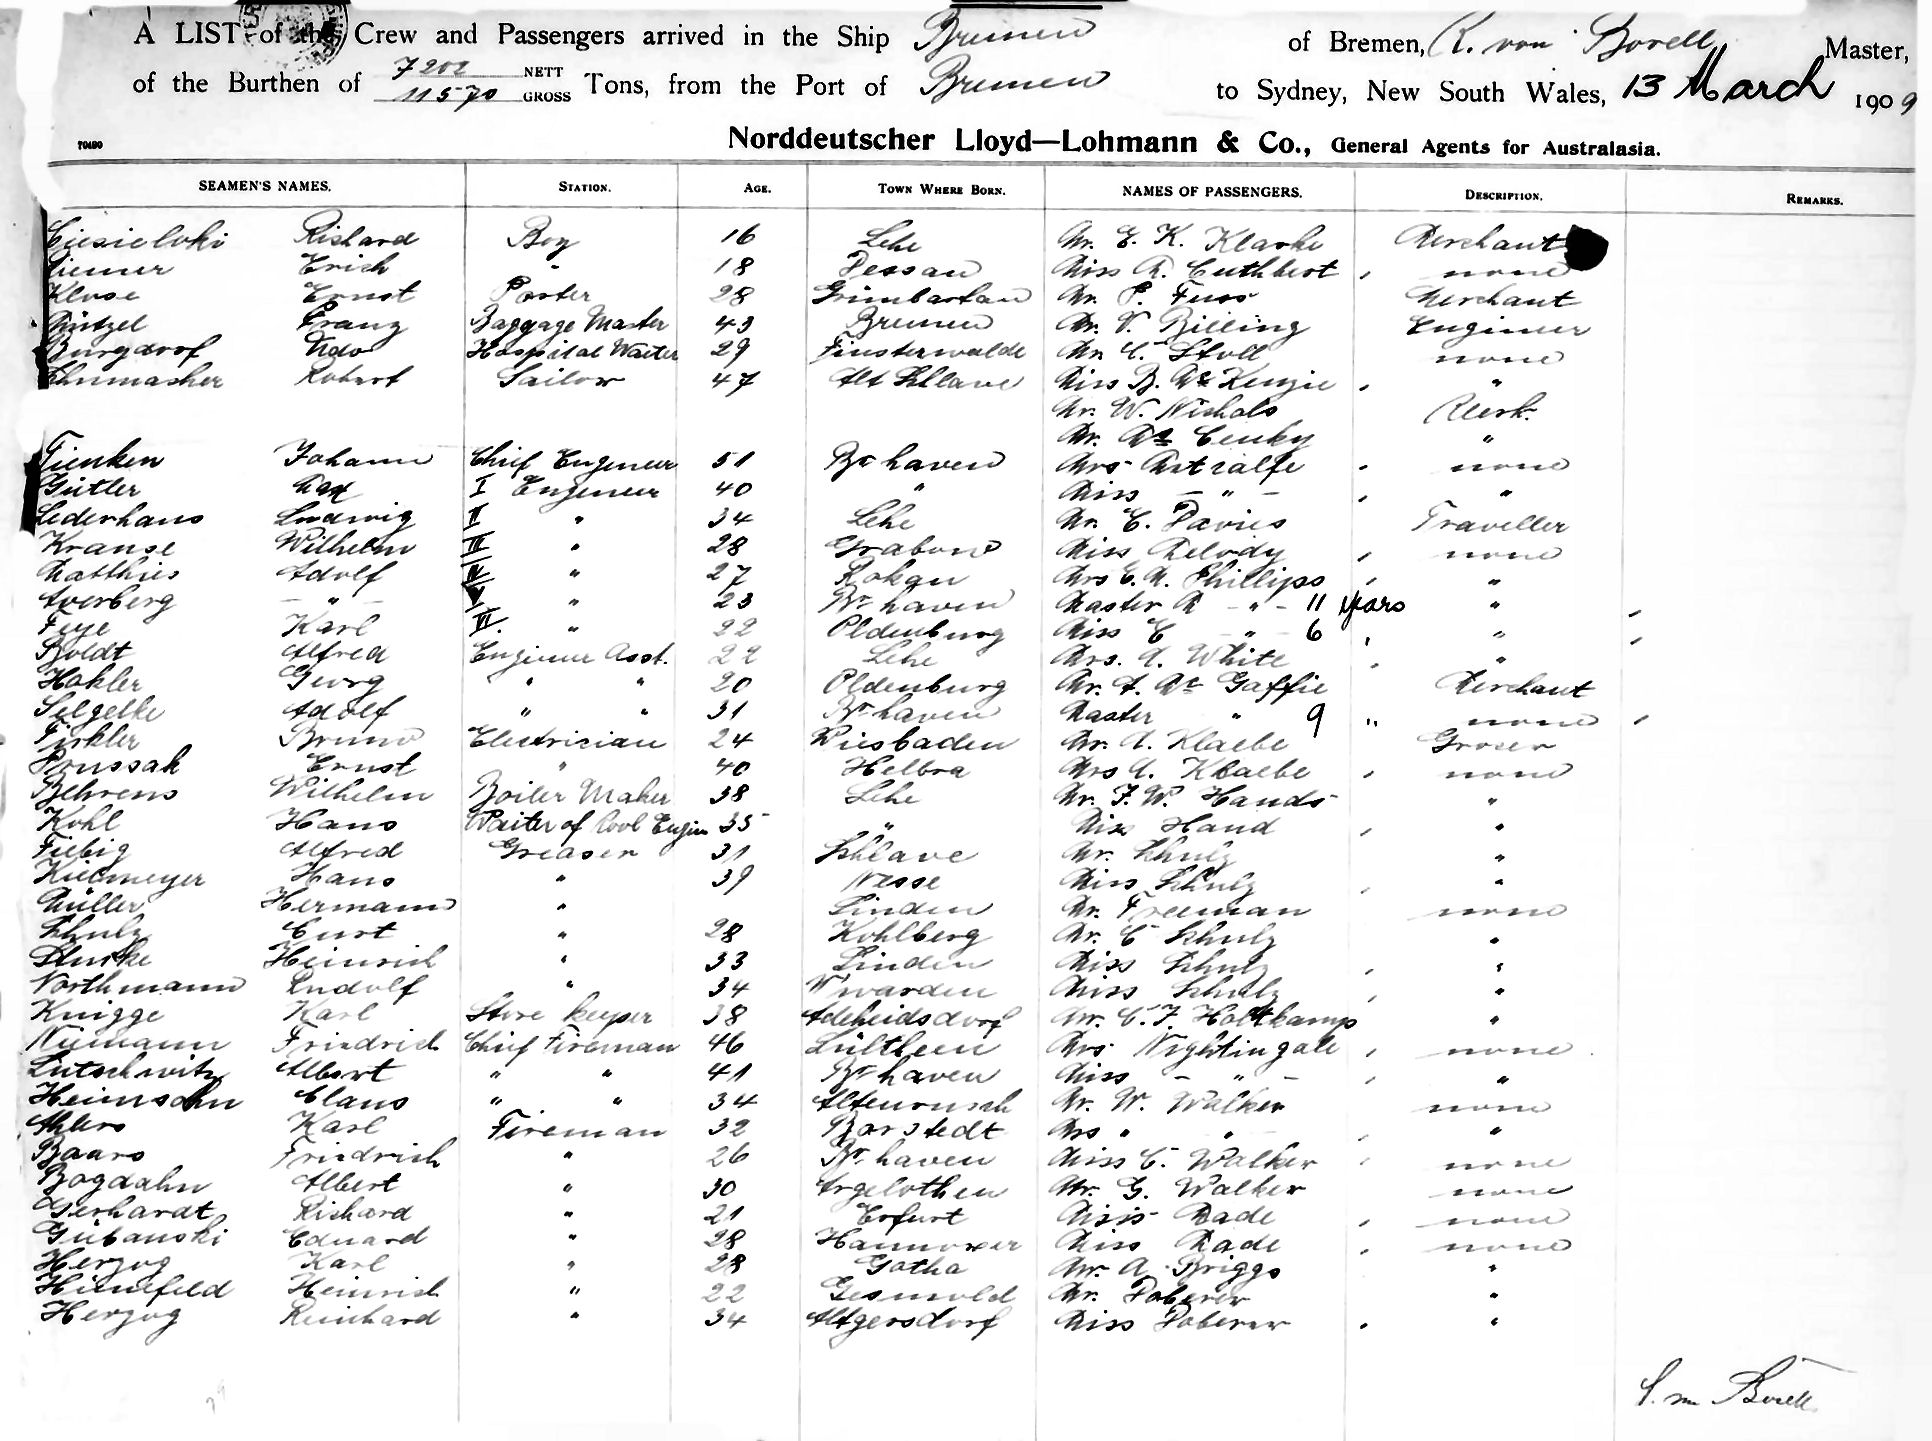 A LIST of the Crew and Passengers arrived in the Ship Bremen of Bremen, R. von Borell Master,
of the Burthen of 7202 NETT 11570 GROSS Tons, from the Port of Bremen to Sydney, New South Wales, 13 March 1909
70490 Norddeutscher Lloyd—Lohmann & Co., General Agents for Australasia.
SEAMEN'S NAMES. STATION. AGE. TOWN WHERE BORN. NAMES OF PASSENGERS. DESCRIPTION. REMARKS.
Ciesielski Richard Boy 16 Lehe Mr. E. K. Klarke Merchant
Erich " 18 Dessau Miss A. Cuthbert , none
Klose Ernst Porter 28 Mr. P. Fuss Merchant
Franz Baggage Master 43 Bremen Mr. V. Billing Engineer
Burgdorf Udo Hospital Waiter 29 Finsterwalde Mr. C. Stoll none
Schumacher Robert Sailor 47 Alt Schlawe Miss B. McKenzie , "
Mr. W. Nichols Clerk
Mr. "
Tienken Johann Chief Engineer 51 Brhaven Mrs Metcalfe . none
Gütler Max I Engineer 40 " Miss — " — , "
Lederhans Ludwig II " 34 Lehe Mr. C. Davies Traveller
Krause Wilhelm III " 28 Grabow Miss Melody , none
Matthies Adolf IV " 27 Mrs E. A. Phillips , "
Averberg — " — V " 23 Brhaven Master R — " — 11 years "
Feye Karl VI. " 22 Oldenburg Miss E — " — 6 , "
Boldt Alfred Engineer Asst. 22 Lehe Mrs. A. White , "
Hakler Georg " " 20 Oldenburg Mr. A. Mc Gaffie Merchant
Selgelke Adolf " " 31 Brhaven Master " 9 " none
Bruno Electrician 24 Wiesbaden Mr. A. Klaebe Grocer
Poussak Ernst " 40 Helbra Mrs A. Klaebe , none
Behrens Wilhelm Boiler Maker 38 Lehe Mr. F. W. Hands "
Kohl Hans Waiter of Cool Engin 35 " Miss Hand , "
Fiebig Alfred Greaser 31 Schlave Mr. Schulz "
Kiesmeyer Hans " 39 Nesse Miss Schulz , "
Müller Hermann " Linden Mr. Freeman none
Schulz Curt " 28 Kohlberg Mr. C Schulz "
Heinrich " 33 Linden Miss Schulz , "
Northmann Rudolf " 34 W'warden Miss Schulz , "
Knigge Karl Store keeper 38 Adelheidsdorf Mr. C. F. Holtkamp "
Niemann Friedrich Chief Fireman 46 Lültheen Mrs Nightingale , none
Lutschwitz Albert " " 41 Brhaven Miss — " — , "
Heimsohn Claus " " 34 Altenbruch Mr. W. Walker none
Ahlers Karl Fireman 32 Barstedt Mrs " " , "
Baars Friedrich " 26 Brhaven Miss C. Walker , none
Bogdahn Albert " 30 Argelothen Mr. G. Walker none
Gerhardt Richard " 21 Erfurt Miss Made , none
Gubanski Eduard " 28 Hannover Miss Made , none
Herzog Karl " 28 Gotha Mr. A. Briggs "
Hienefeld Heinrich " 22 Gesmold Mr. Poberer "
Herzog Reinhard " 34 Altgersdorf Miss Poberer . "
Borell